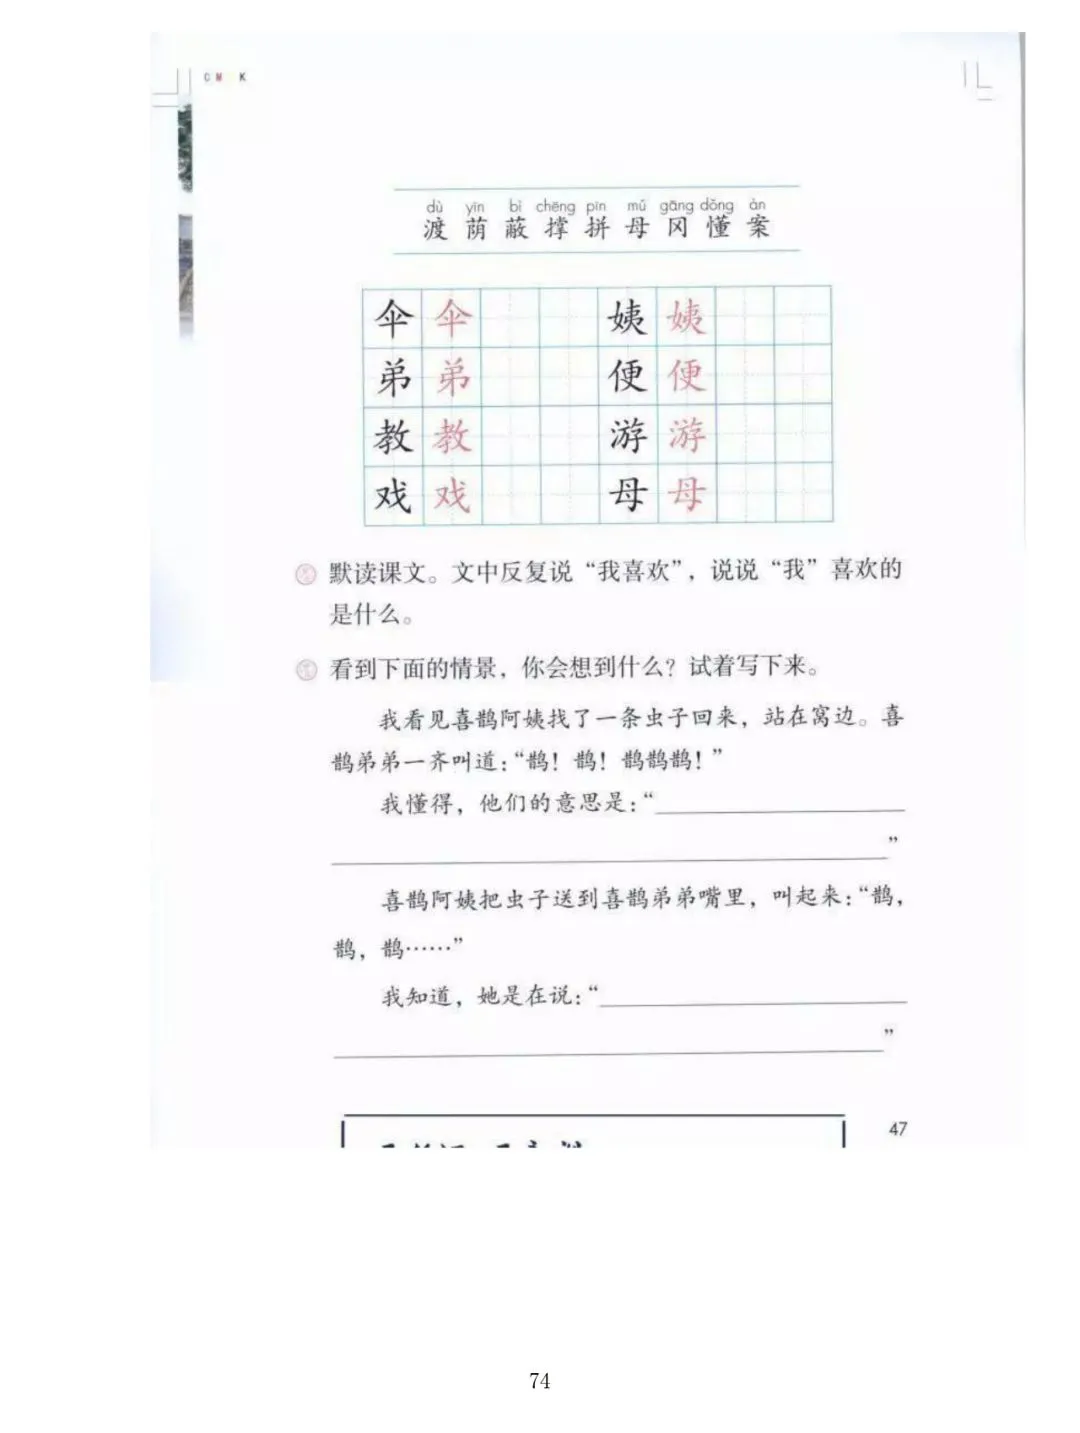 C M K
dù yīn bì chēng pīn mǔ gāng dǒng àn
渡 荫 蔽 撑 拼 母 冈 懂 案
伞 伞 姨 姨
弟 弟 便 便
教 教 游 游
戏 戏 母 母
默读课文。文中反复说“我喜欢”，说说“我”喜欢的
是什么。
看到下面的情景，你会想到什么？试着写下来。
我看见喜鹊阿姨找了一条虫子回来，站在窝边。喜
鹊弟弟一齐叫道：“鹊！鹊！鹊鹊鹊！”
我懂得，他们的意思是：“
”
喜鹊阿姨把虫子送到喜鹊弟弟嘴里，叫起来：“鹊，
鹊，鹊……”
我知道，她是在说：“
”
47
74